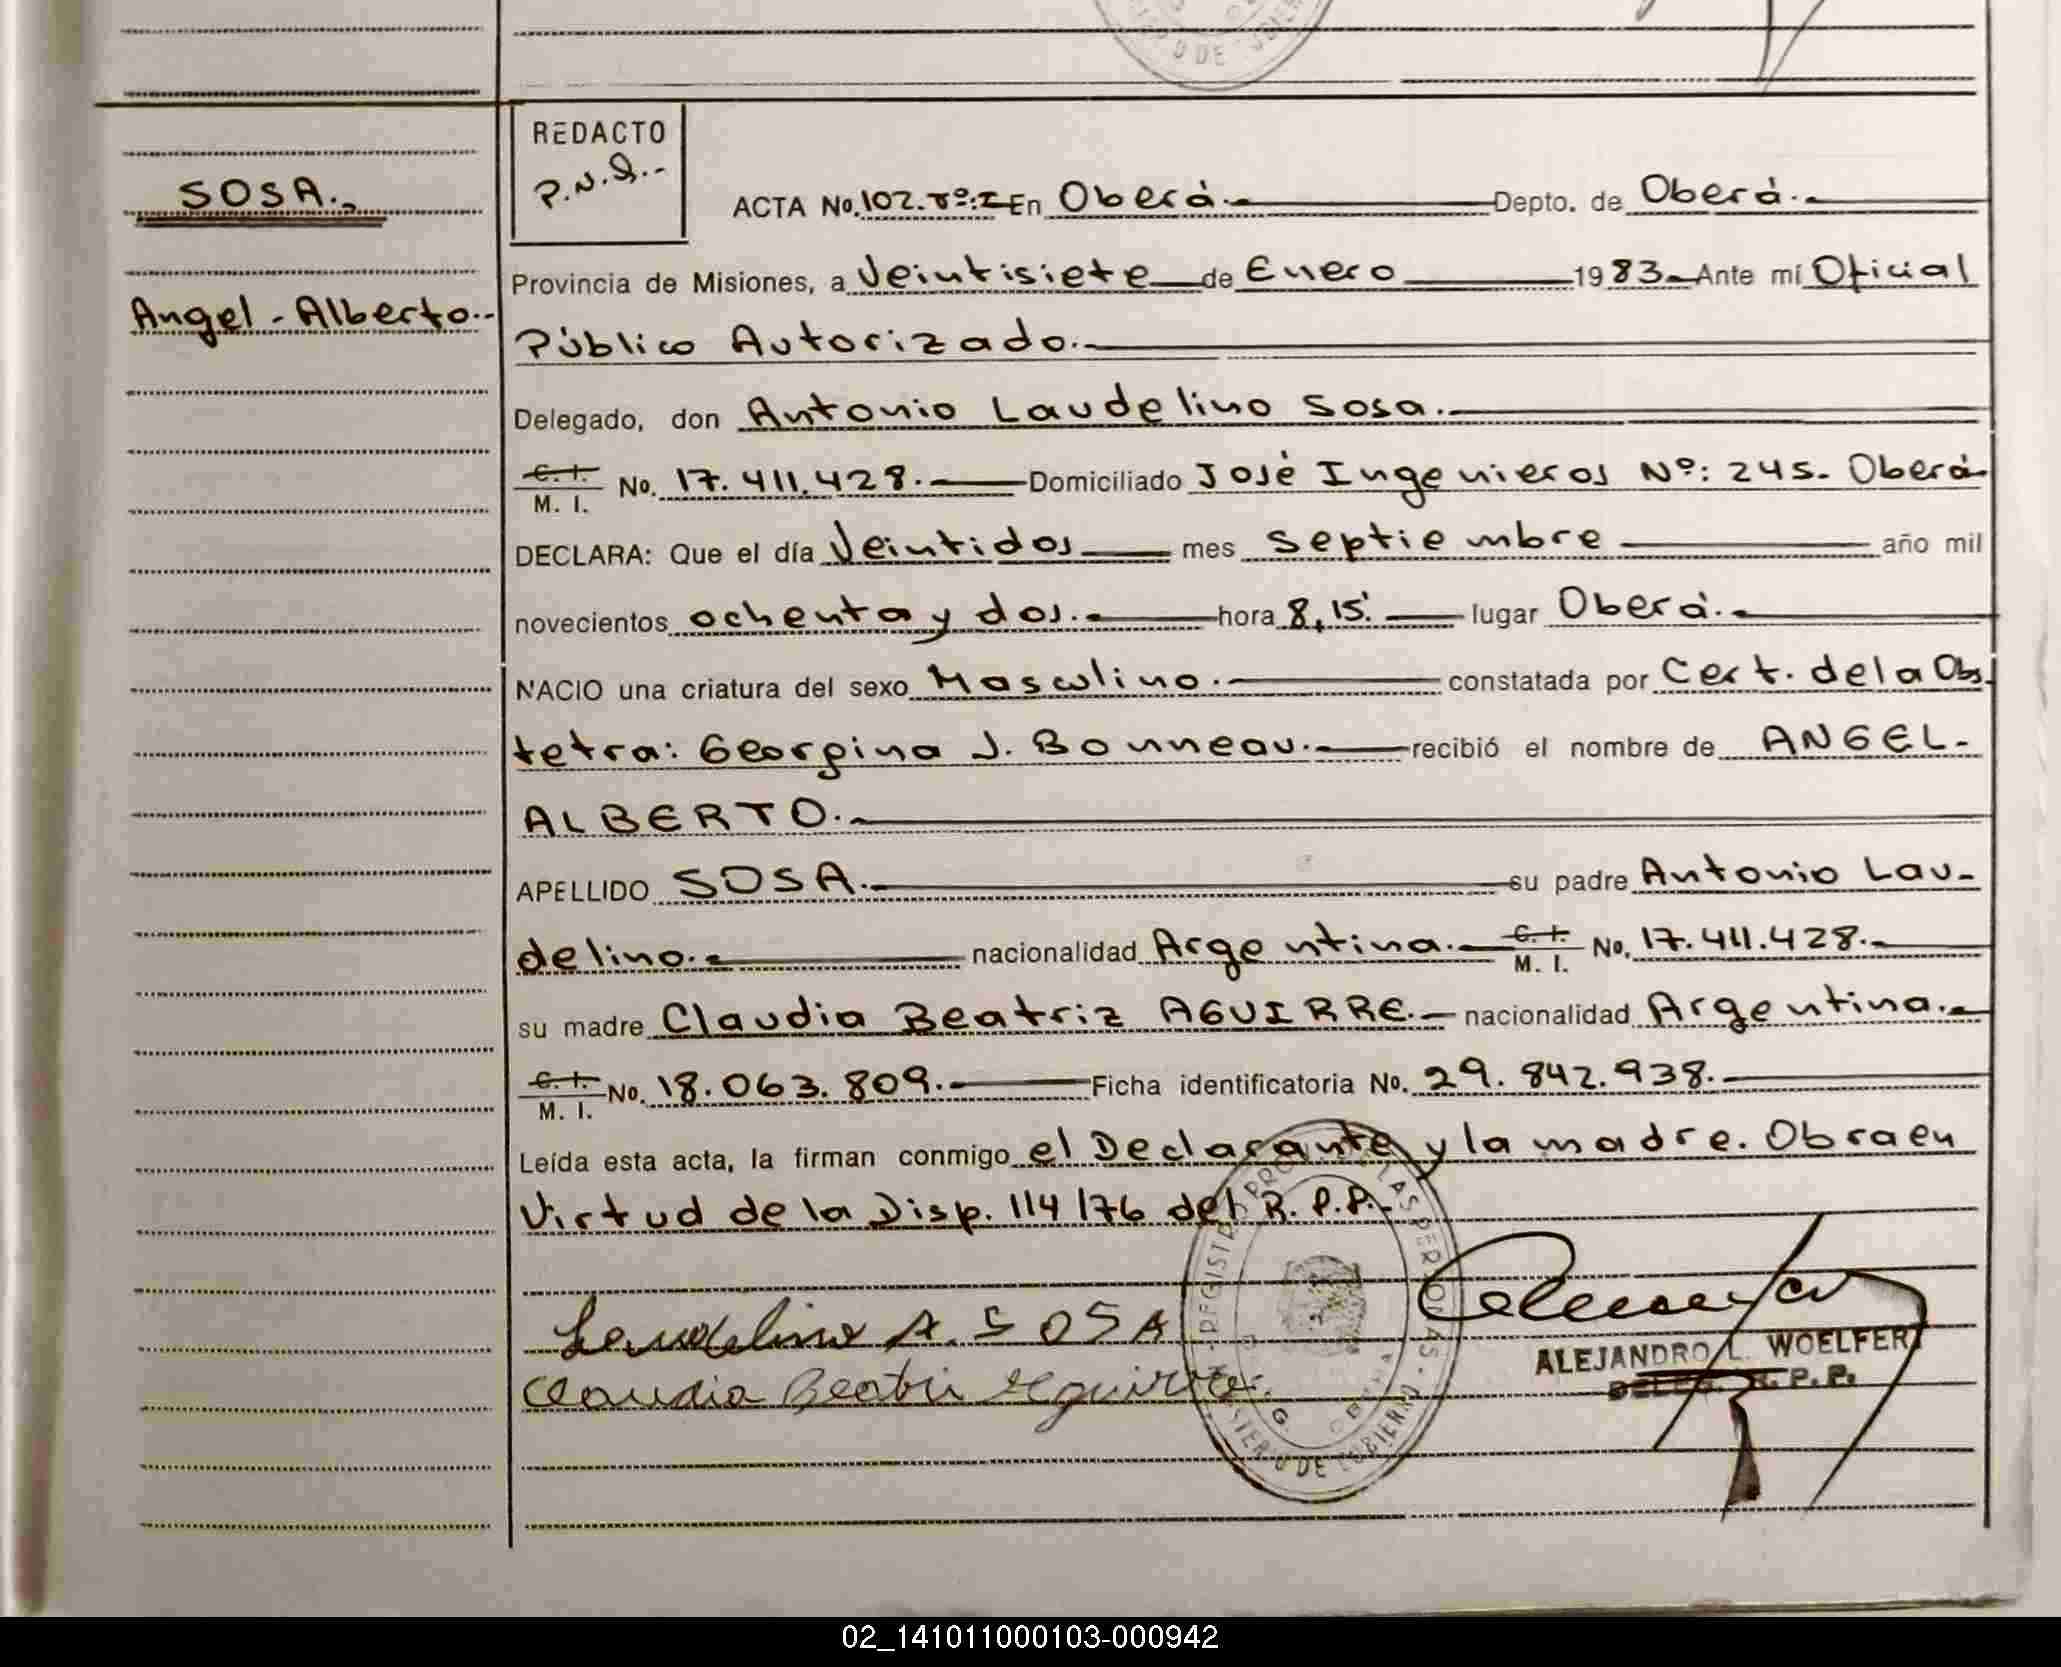 SOSA.
Angel - Alberto.-
REDACTO
ACTA No. 102. Tº: I En Oberá.- Depto. de Oberá.-
Provincia de Misiones, a Veintisiete de Enero 1983.- Ante mí Oficial
Público Autorizado.-
Delegado, don Antonio Laudelino Sosa.-
C. I.
M. I. No. 17.411.428.- Domiciliado José Ingenieros Nº: 245.- Oberá
DECLARA: Que el día Veintidos mes Septiembre año mil
novecientos ochenta y dos.- hora 8,15' lugar Oberá.-
NACIO una criatura del sexo Masculino.- constatada por Cert. de la Obs.
tetra: Georgina J. Bonneau.- recibió el nombre de ANGEL-
ALBERTO.-
APELLIDO SOSA.- su padre Antonio Lau-
delino.- nacionalidad Argentina.- C. I.
M. I. No. 17.411.428.-
su madre Claudia Beatriz AGUIRRE.- nacionalidad Argentina.-
C. I.
M. I. No. 18.063.809.- Ficha identificatoria No. 29.842.938.-
Leída esta acta, la firman conmigo el Declarante y la madre. Obra en
Virtud de la Disp. 114/76 del R.P.P.-
Laudelino A. SOSA
Claudia Beatriz Aguirre
ALEJANDRO L. WOELFER
DELEG. R.P.P.
02_141011000103-000942